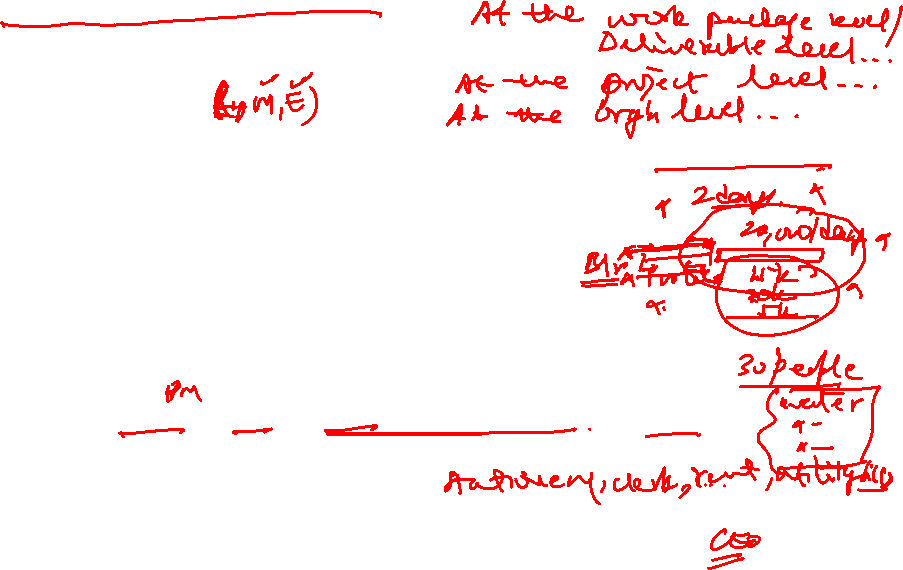 At the work package level/
Deliverable Level...
(L, M, E)
At the project level...
At the Orgn level...
2 days
20,000/day
Blr
30 people
water
PM
Stationery, clerk, rent, utility
CEO